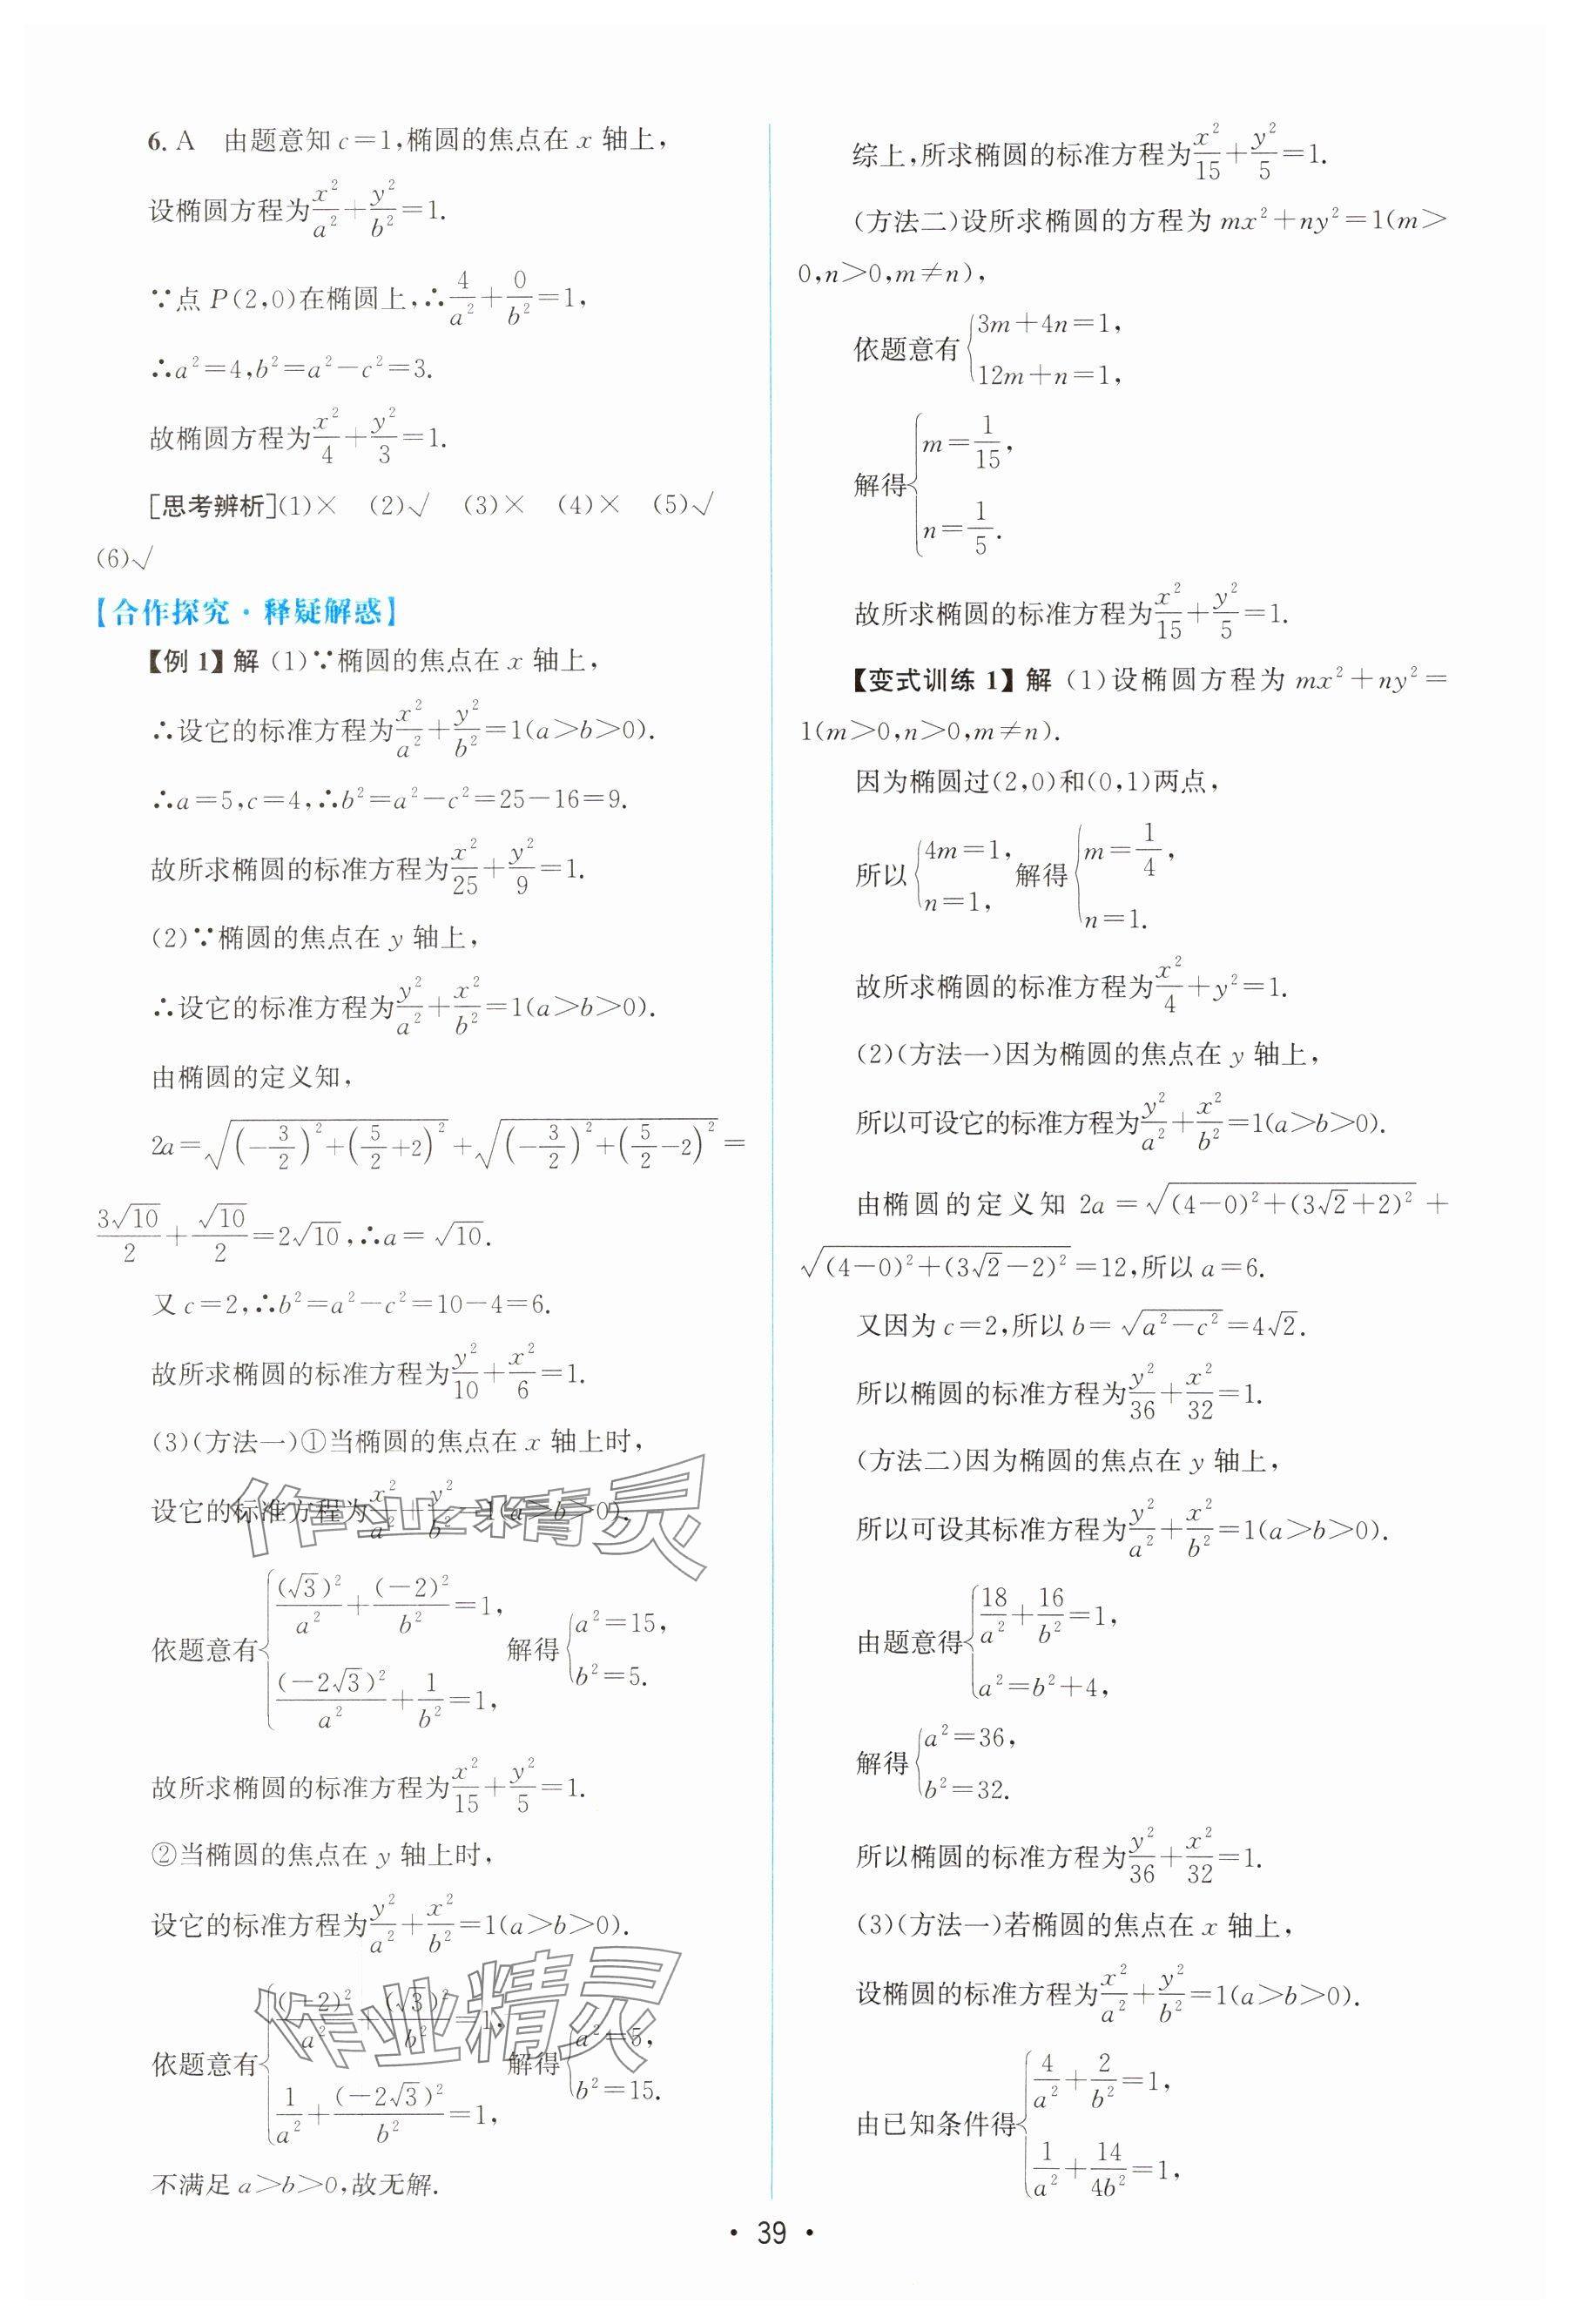 6. A　由题意知 c=1,椭圆的焦点在 x 轴上,
设椭圆方程为x²/a²+y²/b²=1.
∵点 P(2,0)在椭圆上,∴4/a²+0/b²=1,
∴a²=4,b²=a²-c²=3.
故椭圆方程为x²/4+y²/3=1.
[思考辨析](1)×　(2)√　(3)×　(4)×　(5)√
(6)√
【合作探究·释疑解惑】
【例 1】解 (1)∵椭圆的焦点在 x 轴上,
∴设它的标准方程为x²/a²+y²/b²=1(a>b>0).
∴a=5,c=4,∴b²=a²-c²=25-16=9.
故所求椭圆的标准方程为x²/25+y²/9=1.
(2)∵椭圆的焦点在 y 轴上,
∴设它的标准方程为y²/a²+x²/b²=1(a>b>0).
由椭圆的定义知,
2a=√((-3/2)²+(5/2+2)²)+√((-3/2)²+(5/2-2)²)=
3√10/2+√10/2=2√10,∴a=√10.
又 c=2,∴b²=a²-c²=10-4=6.
故所求椭圆的标准方程为y²/10+x²/6=1.
(3)(方法一)①当椭圆的焦点在 x 轴上时,
设它的标准方程为x²/a²+y²/b²=1(a>b>0).
依题意有{(√3)²/a²+(-2)²/b²=1, (-2√3)²/a²+1/b²=1, 解得{a²=15, b²=5.
故所求椭圆的标准方程为x²/15+y²/5=1.
②当椭圆的焦点在 y 轴上时,
设它的标准方程为y²/a²+x²/b²=1(a>b>0).
依题意有{(-2)²/a²+(√3)²/b²=1, 1/a²+(-2√3)²/b²=1, 解得{a²=5, b²=15.
不满足 a>b>0,故无解.
综上,所求椭圆的标准方程为x²/15+y²/5=1.
(方法二)设所求椭圆的方程为 mx²+ny²=1(m>
0,n>0,m≠n),
依题意有{3m+4n=1, 12m+n=1,
解得{m=1/15, n=1/5.
故所求椭圆的标准方程为x²/15+y²/5=1.
【变式训练 1】解 (1)设椭圆方程为 mx²+ny²=
1(m>0,n>0,m≠n).
因为椭圆过(2,0)和(0,1)两点,
所以{4m=1, n=1, 解得{m=1/4, n=1.
故所求椭圆的标准方程为x²/4+y²=1.
(2)(方法一)因为椭圆的焦点在 y 轴上,
所以可设它的标准方程为y²/a²+x²/b²=1(a>b>0).
由椭圆的定义知 2a=√((4-0)²+(3√2+2)²)+
√((4-0)²+(3√2-2)²)=12,所以 a=6.
又因为 c=2,所以 b=√(a²-c²)=4√2.
所以椭圆的标准方程为y²/36+x²/32=1.
(方法二)因为椭圆的焦点在 y 轴上,
所以可设其标准方程为y²/a²+x²/b²=1(a>b>0).
由题意得{18/a²+16/b²=1, a²=b²+4,
解得{a²=36, b²=32.
所以椭圆的标准方程为y²/36+x²/32=1.
(3)(方法一)若椭圆的焦点在 x 轴上,
设椭圆的标准方程为x²/a²+y²/b²=1(a>b>0).
由已知条件得{4/a²+2/b²=1, 1/a²+14/4b²=1,
· 39 ·
作业精灵
作业精灵